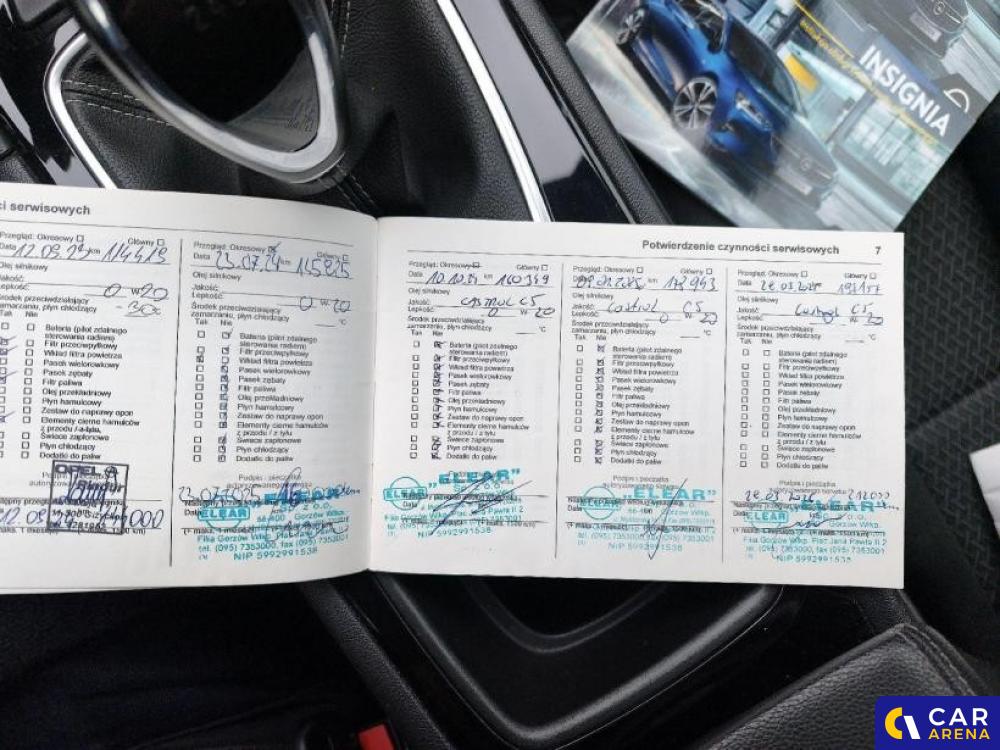 INSIGNIA
ci serwisowych
Główny
Data 12.09.23 km 114419
Olej silnikowy
Jakość:
Lepkość: 0 W 20
Środek przeciwdziałający
zamarzaniu, płyn chłodzący: -30 °C
Tak Nie
Bateria (pilot zdalnego
sterowania radiem)
Filtr przeciwpyłkowy
Wkład filtra powietrza
Pasek wielorowkowy
Pasek zębaty
Filtr paliwa
Olej przekładniowy
Płyn hamulcowy
Zestaw do naprawy opon
Elementy cierne hamulców
z przodu / z tyłu
Świece zapłonowe
Płyn chłodzący
Dodatki do paliw
OPEL
Przegląd: Okresowy Główny
Data 23.07.24 km 145825
Olej silnikowy
Jakość:
Lepkość: 0 W 20
Środek przeciwdziałający
zamarzaniu, płyn chłodzący: °C
Tak Nie
Bateria (pilot zdalnego
sterowania radiem)
Filtr przeciwpyłkowy
Wkład filtra powietrza
Pasek wielorowkowy
Pasek zębaty
Filtr paliwa
Olej przekładniowy
Płyn hamulcowy
Zestaw do naprawy opon
Elementy cierne hamulców
z przodu / z tyłu
Świece zapłonowe
Płyn chłodzący
Dodatki do paliw
Podpis i pieczątka
ELEAR
Filia Gorzów Wlkp.
tel. (095) 7353000
NIP 5992991538
Potwierdzenie czynności serwisowych 7
Przegląd: Okresowy Główny
Data 10.10.24 km 160349
Olej silnikowy
Jakość: CASTROL C5
Lepkość: 0 W 20
Środek przeciwdziałający
zamarzaniu, płyn chłodzący: °C
Tak Nie
Bateria (pilot zdalnego
sterowania radiem)
Filtr przeciwpyłkowy
Wkład filtra powietrza
Pasek wielorowkowy
Pasek zębaty
Filtr paliwa
Olej przekładniowy
Płyn hamulcowy
Zestaw do naprawy opon
Elementy cierne hamulców
z przodu / z tyłu
Świece zapłonowe
Płyn chłodzący
Dodatki do paliw
ELEAR "ELEAR"
Filia Gorzów Wlkp. Plac Jana Pawła II 2
tel. (095) 7353000, fax (095) 7351531
NIP 5992991538
Przegląd: Okresowy Główny
km 178943
Olej silnikowy
Jakość: Castrol C5
Lepkość: 0 W 20
Środek przeciwdziałający
zamarzaniu, płyn chłodzący: °C
Tak Nie
Bateria (pilot zdalnego
sterowania radiem)
Filtr przeciwpyłkowy
Wkład filtra powietrza
Pasek wielorowkowy
Pasek zębaty
Filtr paliwa
Olej przekładniowy
Płyn hamulcowy
Zestaw do naprawy opon
Elementy cierne hamulców
z przodu / z tyłu
Świece zapłonowe
Płyn chłodzący
Dodatki do paliw
ELEAR "ELEAR"
NIP 5992991538
Przegląd: Okresowy Główny
Data km
Olej silnikowy
Jakość: Castrol C5
Lepkość: 0 W 20
Środek przeciwdziałający
zamarzaniu, płyn chłodzący: °C
Tak Nie
Bateria (pilot zdalnego
sterowania radiem)
Filtr przeciwpyłkowy
Wkład filtra powietrza
Pasek wielorowkowy
Pasek zębaty
Filtr paliwa
Olej przekładniowy
Płyn hamulcowy
Zestaw do naprawy opon
Elementy cierne hamulców
z przodu / z tyłu
Świece zapłonowe
Płyn chłodzący
Dodatki do paliw
Podpis i pieczątka
28.03.2026 212000
ELEAR "ELEAR"
Filia Gorzów Wlkp. Plac Jana Pawła II 2
NIP 5992991538
CAR
ARENA